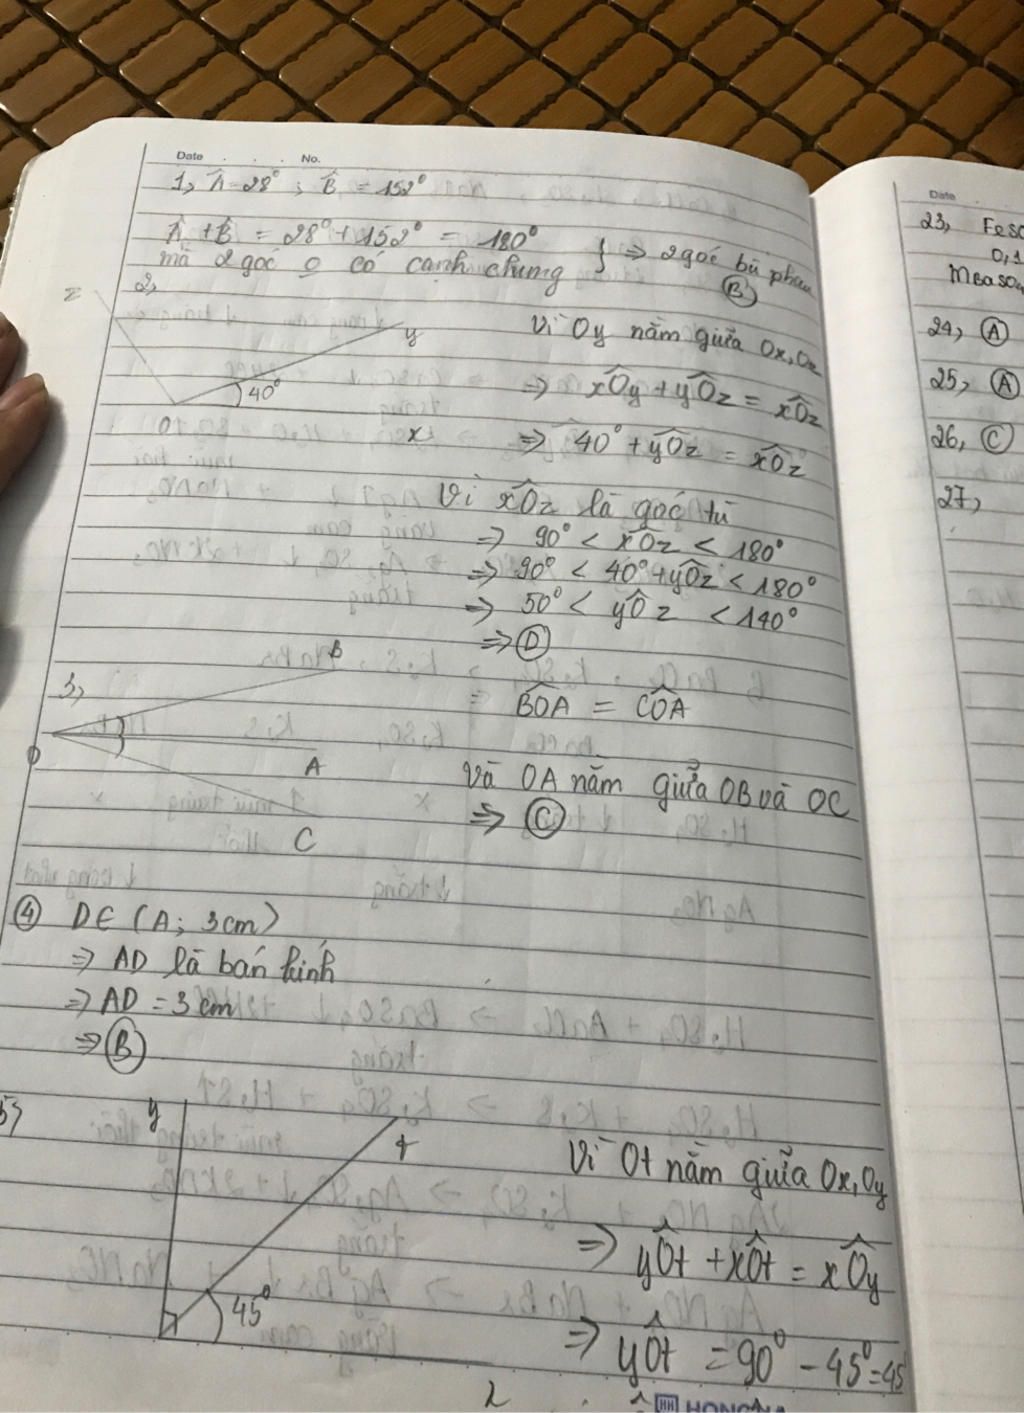 Date No.
1, Â = 28° ; B̂ = 152°
Â + B̂ = 28° + 152° = 180°
mà 2 góc o có cạnh chung } => 2 góc bù nhau
(B)
2,
z
y
40°
O
x
Vì Oy nằm giữa Ox, Oz
=> xÔy + yÔz = xÔz
=> 40° + yÔz = xÔz
Vì xÔz là góc tù
=> 90° < xÔz < 180°
=> 90° < 40° + yÔz < 180°
=> 50° < yÔz < 140°
=> (D)
3,
B
O
A
C
BÔA = CÔA
Và OA nằm giữa OB và OC
=> (C)
(4) D∈ (A; 3cm)
=> AD là bán kính
=> AD = 3cm
=> (B)
5,
y
t
45°
Vì Ot nằm giữa Ox, Oy
=> yÔt + xÔt = xÔy
=> yÔt = 90° - 45° = 45
HH
Date
23, FeSO
0,1
MBaSO₄
24, (A)
25, (A)
26, (C)
27,